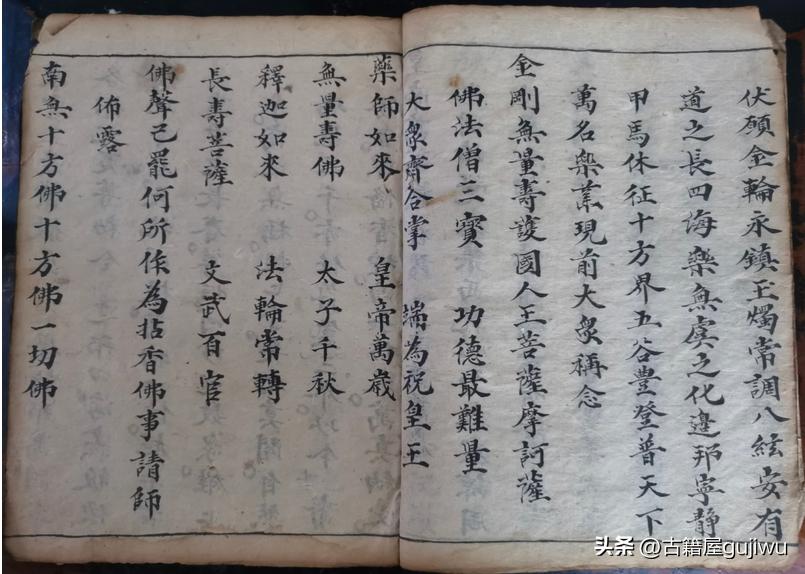 伏願金輪永鎮玉燭常調八絃安有
道之長四海樂無虞之化邊邦寧靜
甲馬休征十方界五谷豊登普天下
萬名樂業現前大衆稱念
金剛無量壽護國人王菩薩摩訶薩
佛法僧三寶 功德最難量
大衆齊合掌 端為祝皇王
藥師如來 皇帝萬歲
無量壽佛 太子千秋
釋迦如來 法輪常轉
長壽菩薩 文武百官
佛聲已罷何所作為拈香佛事請師
佈露
南無十方佛十方佛一切佛
头条 @古籍屋gujiwu